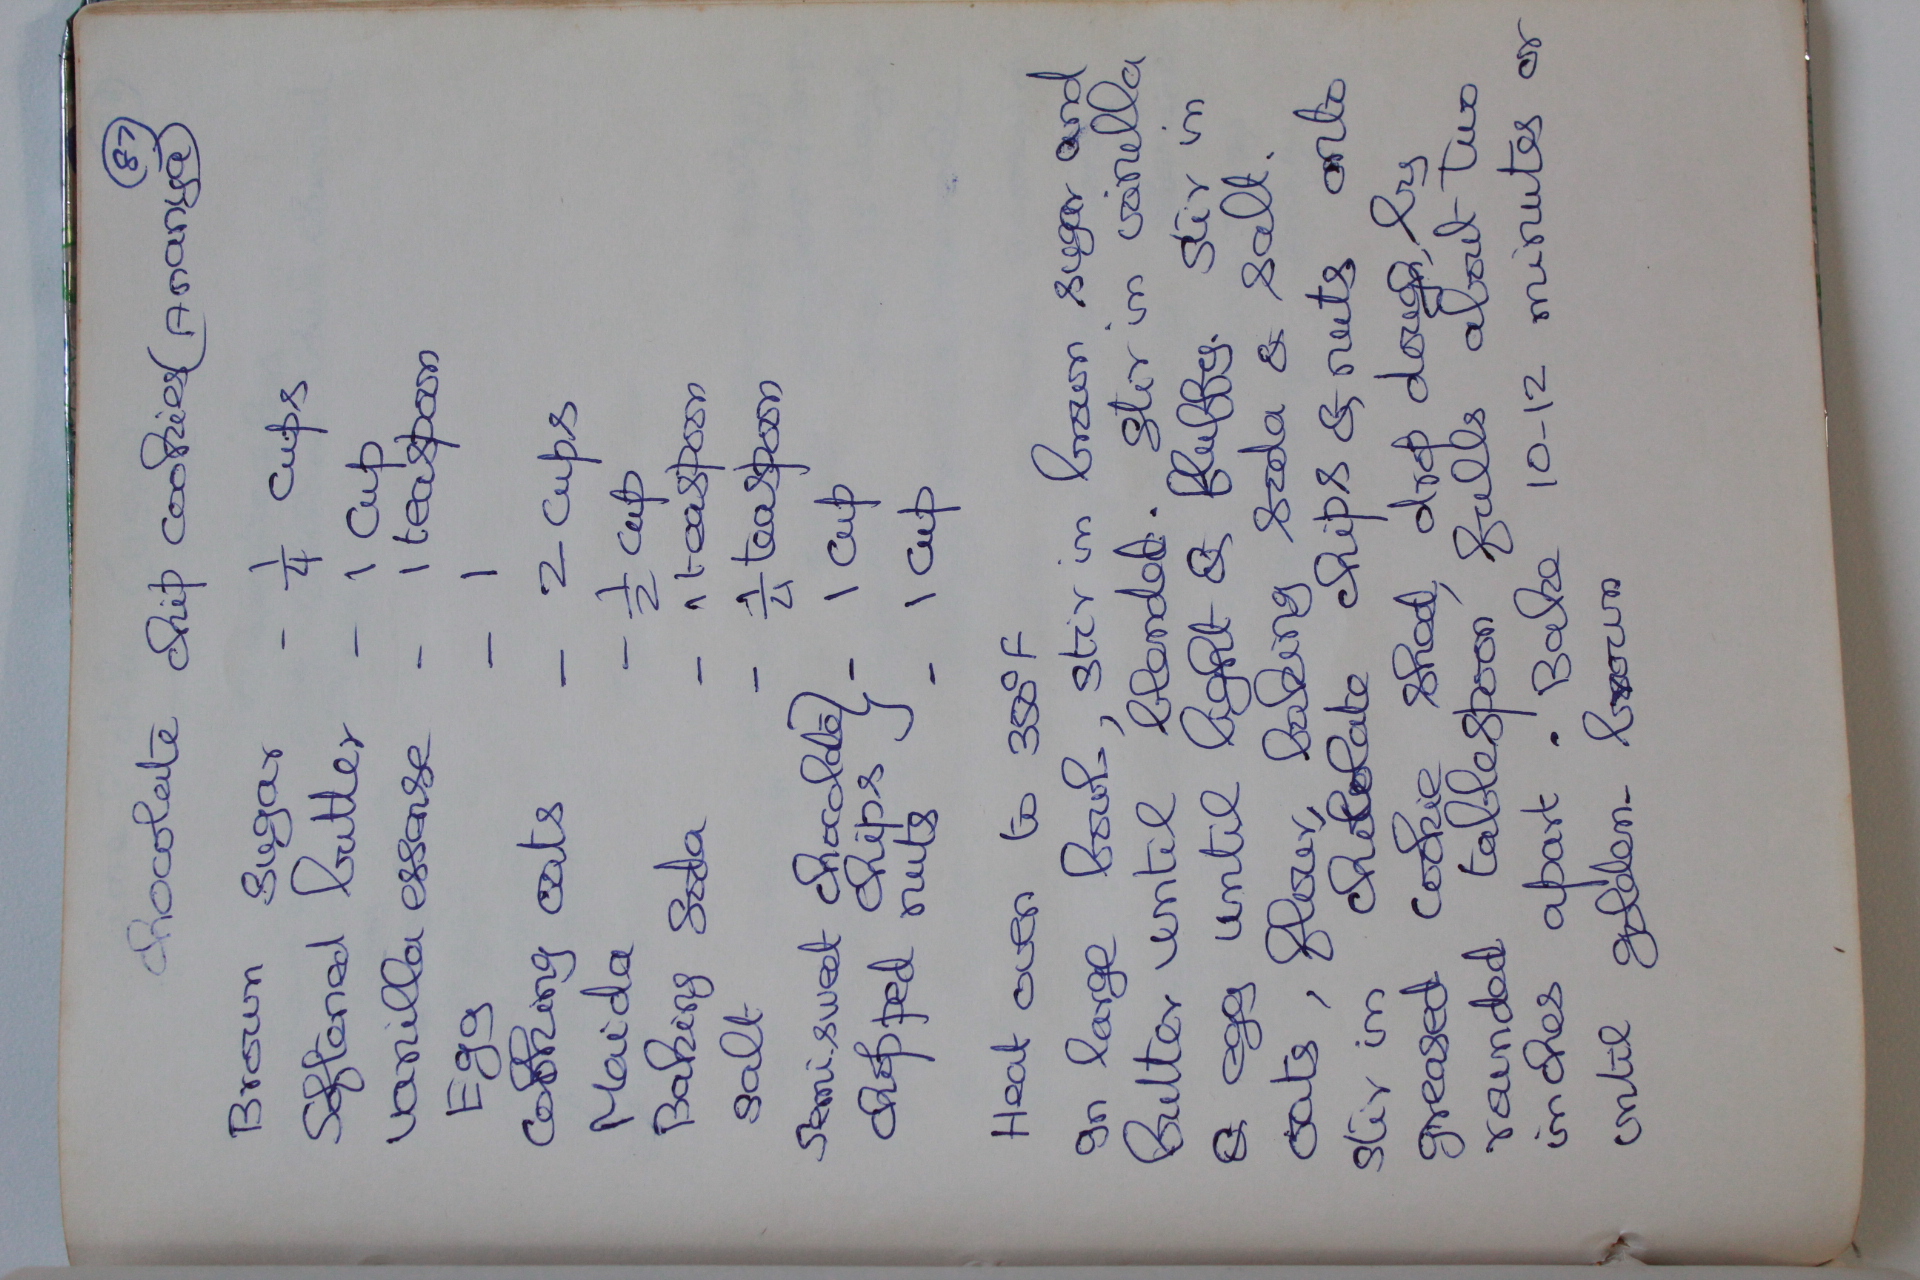 87
Chocolate chip cookies (Ananya)
Brown sugar - 1/4 cups
Softened butter - 1 cup
Vanilla essense - 1 teaspoon
Egg - 1
Cooking oats - 2 cups
Maida - 1/2 cup
Baking soda - 1 teaspoon
Salt - 1/4 teaspoon
Semi-sweet chocolate chips } - 1 cup
Chopped nuts - 1 cup
Heat oven to 350°F
In large bowl, stir in brown sugar and
butter until blended. Stir in vanilla
& egg until light & fluffy. Stir in
oats, flour, baking soda & salt.
Stir in chocolate chips & nuts onto
greased cookie sheet, drop dough by
rounded tablespoon fulls about two
inches apart. Bake 10-12 minutes or
until golden-brown